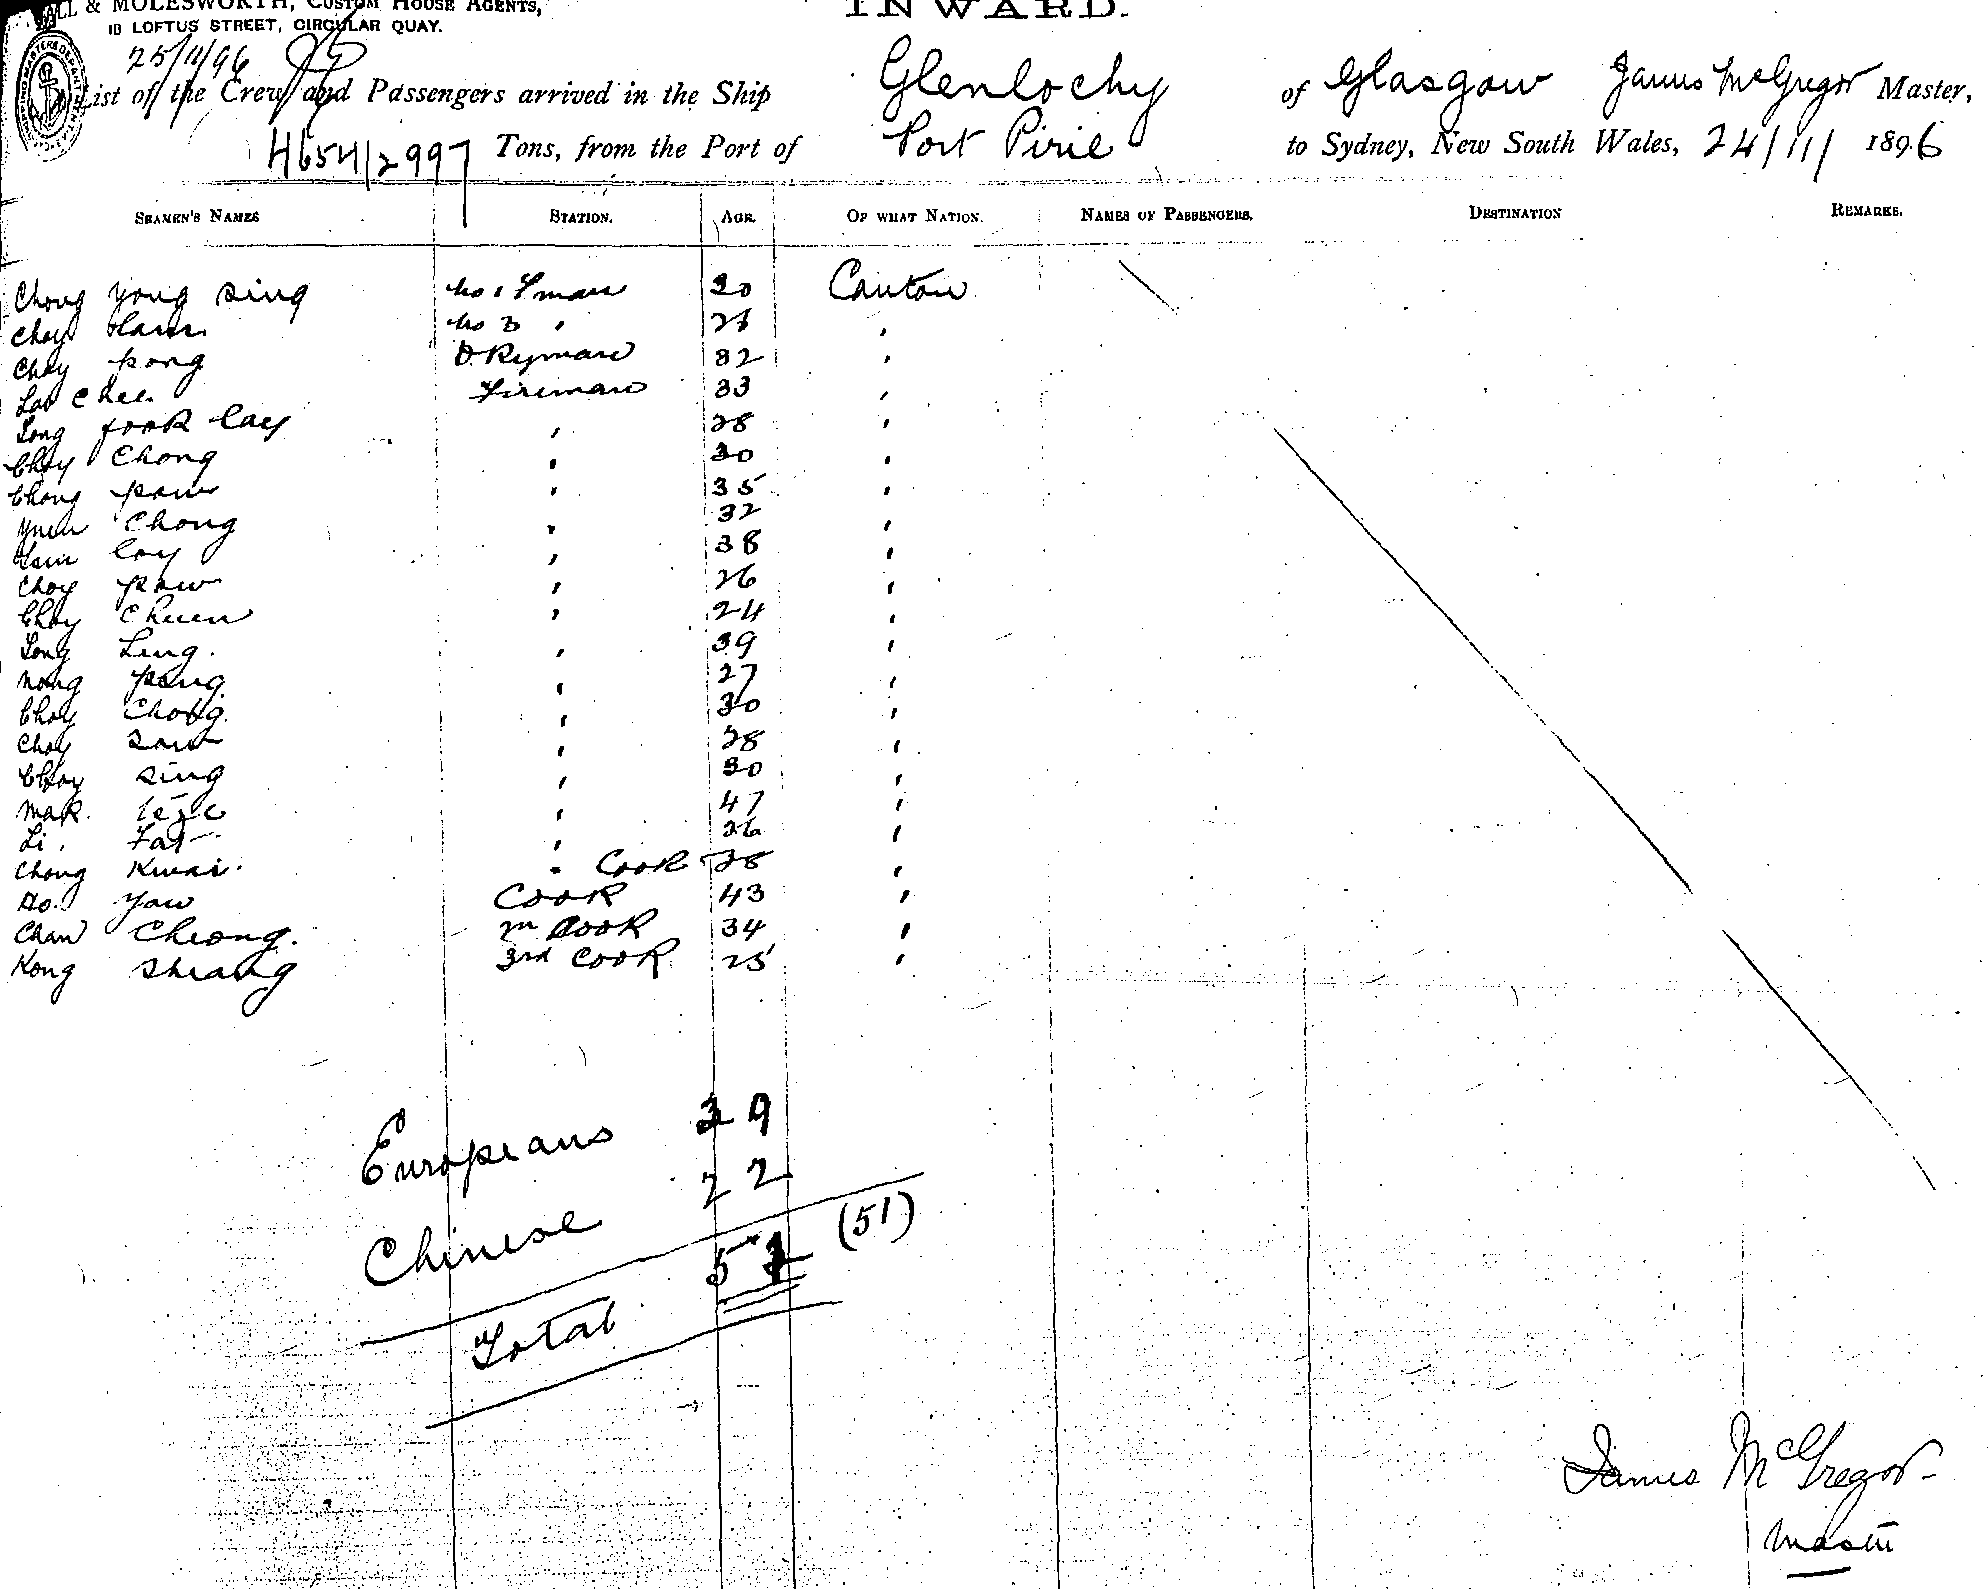 ALL & MOLESWORTH, CUSTOM HOUSE AGENTS,
10 LOFTUS STREET, CIRCULAR QUAY.
INWARD.
25/11/96
List of the Crew and Passengers arrived in the Ship Glenlochy of Glasgow James McGregor Master,
4654/2997 Tons, from the Port of Port Pirie to Sydney, New South Wales, 24/11/ 1896
SEAMEN'S NAMES STATION. AGE. OF WHAT NATION. NAMES OF PASSENGERS. DESTINATION REMARKS.
Chong yong sing No 1 Fman 30 Canton
Choy No 3 "
Choy kong D. Kyman 32 "
Chee Fireman 33 "
Long fook lay " 28 "
Choy Chong " 30 "
Chong paw " 35 "
Yuen Chong " 32 "
lay " 38 "
Choy paw " 26 "
Choy Chuen " 24 "
Long Ling. " 39 "
" 27 "
Choy Chong. " 30 "
Choy Saw " 28 "
Choy Sing " 30 "
Mak. " 47 "
Li. Fat " 26 "
Chong Kwai. " Cook 28 "
Ho. Yaw Cook 43 "
Chan Cheong. 2n Cook 34 "
Kong Sheang 3rd Cook 25 "
Europeans 29
Chinese 22
Total 51 (51)
James McGregor
Master